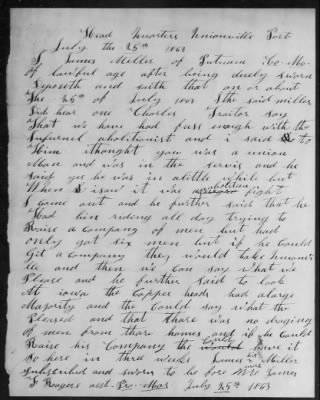 Head Quarters Unionville Post
July the 25th 1863
I James Miller of Putnam Co Mo
of lawful age after being duely sworn
deposeth and saith that on or about
the 25th of July 1863 the said miller
did hear one Charles Traitor say
that we have had fuss enough with the
infurnel abolitionist and i said to
Him i thought you was a union
Man and was in the servis and he
said yes he was in alittle while but
When I saw it was abolition fight
I came out and he further said that he
Had bin riding all day trying to
Raise a company of men but had
only got six men but if he Could
Git a Company they would take
and then we Can say what we
Please and he further said to look
At iowa the Copper heads had alarge
Majority and the Could say what the
Pleased and that thare was no draging
of men from thare homes and if he Could
Raise his Company the Could have it
so here in three weeks James his mark Miller
Subscribed and sworn to be fore me James
F Rogers act. Pro. Mar July 25th 1863